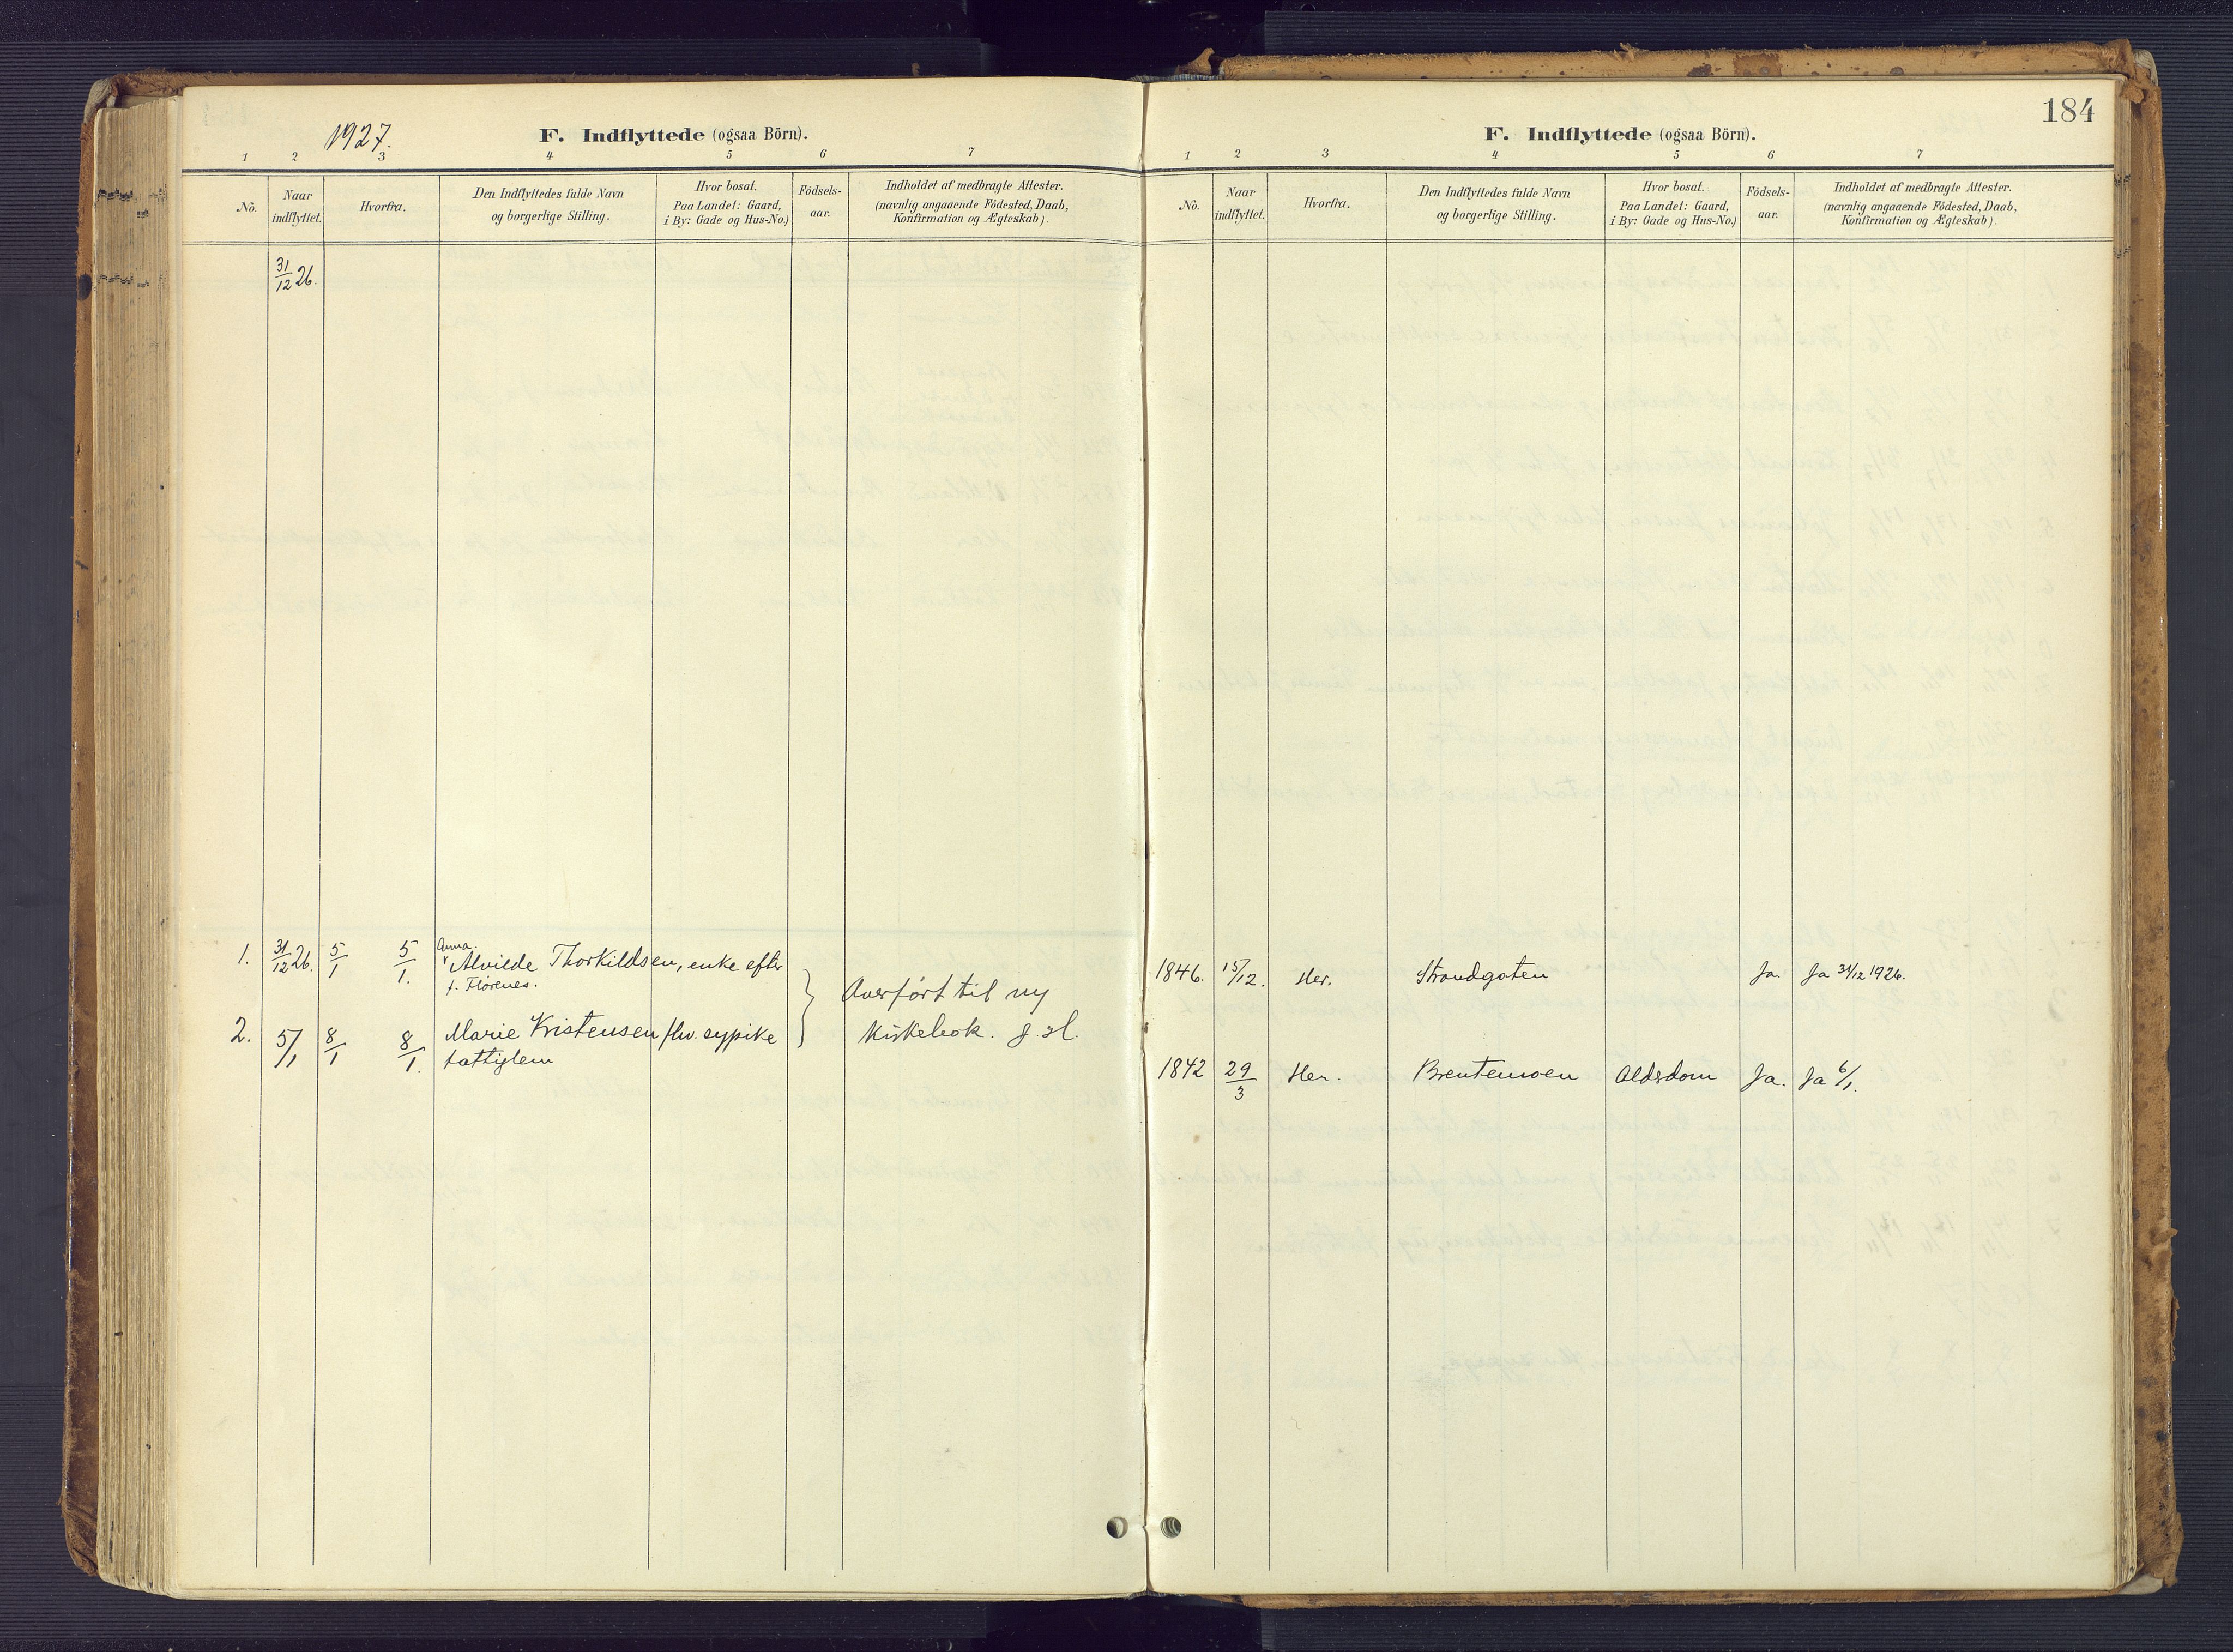 1927.
F. Indflyttede (ogsaa Börn).
1 2 3 4 5 6 7
No. Naar indflyttet. Hvorfra. Den Indflyttedes fulde Navn og borgerlige Stilling. Hvor bosat. Paa Landet: Gaard, i By: Gade og Hus-No.) Födsels-aar. Indholdet af medbragte Attester. (navnlig angaaende Födested, Daab, Konfirmation og Ægteskab).
31/12 26.
1. 31/12 26. 5/1 5/1. Anna
Alvilde Thorkildsen, enke efter
f. Florenes.
Overført til ny
2. 5/1 8/1 8/1. Marie Kristensen fhv. sypike
fattiglem
kirkebok. g. sl.
184
F. Indflyttede (ogsaa Börn).
1 2 3 4 5 6 7
No. Naar indflyttet. Hvorfra. Den Indflyttedes fulde Navn og borgerlige Stilling. Hvor bosat. Paa Landet: Gaard, i By: Gade og Hus-No.) Födsels-aar. Indholdet af medbragte Attester. (navnlig angaaende Födested, Daab, Konfirmation og Ægteskab).
1846. 15/12. Her. Strandgaten Ja Ja 31/12 1926.
1842 29/3 Her. Brentemoen Aldsdom Ja. Ja 6/1.